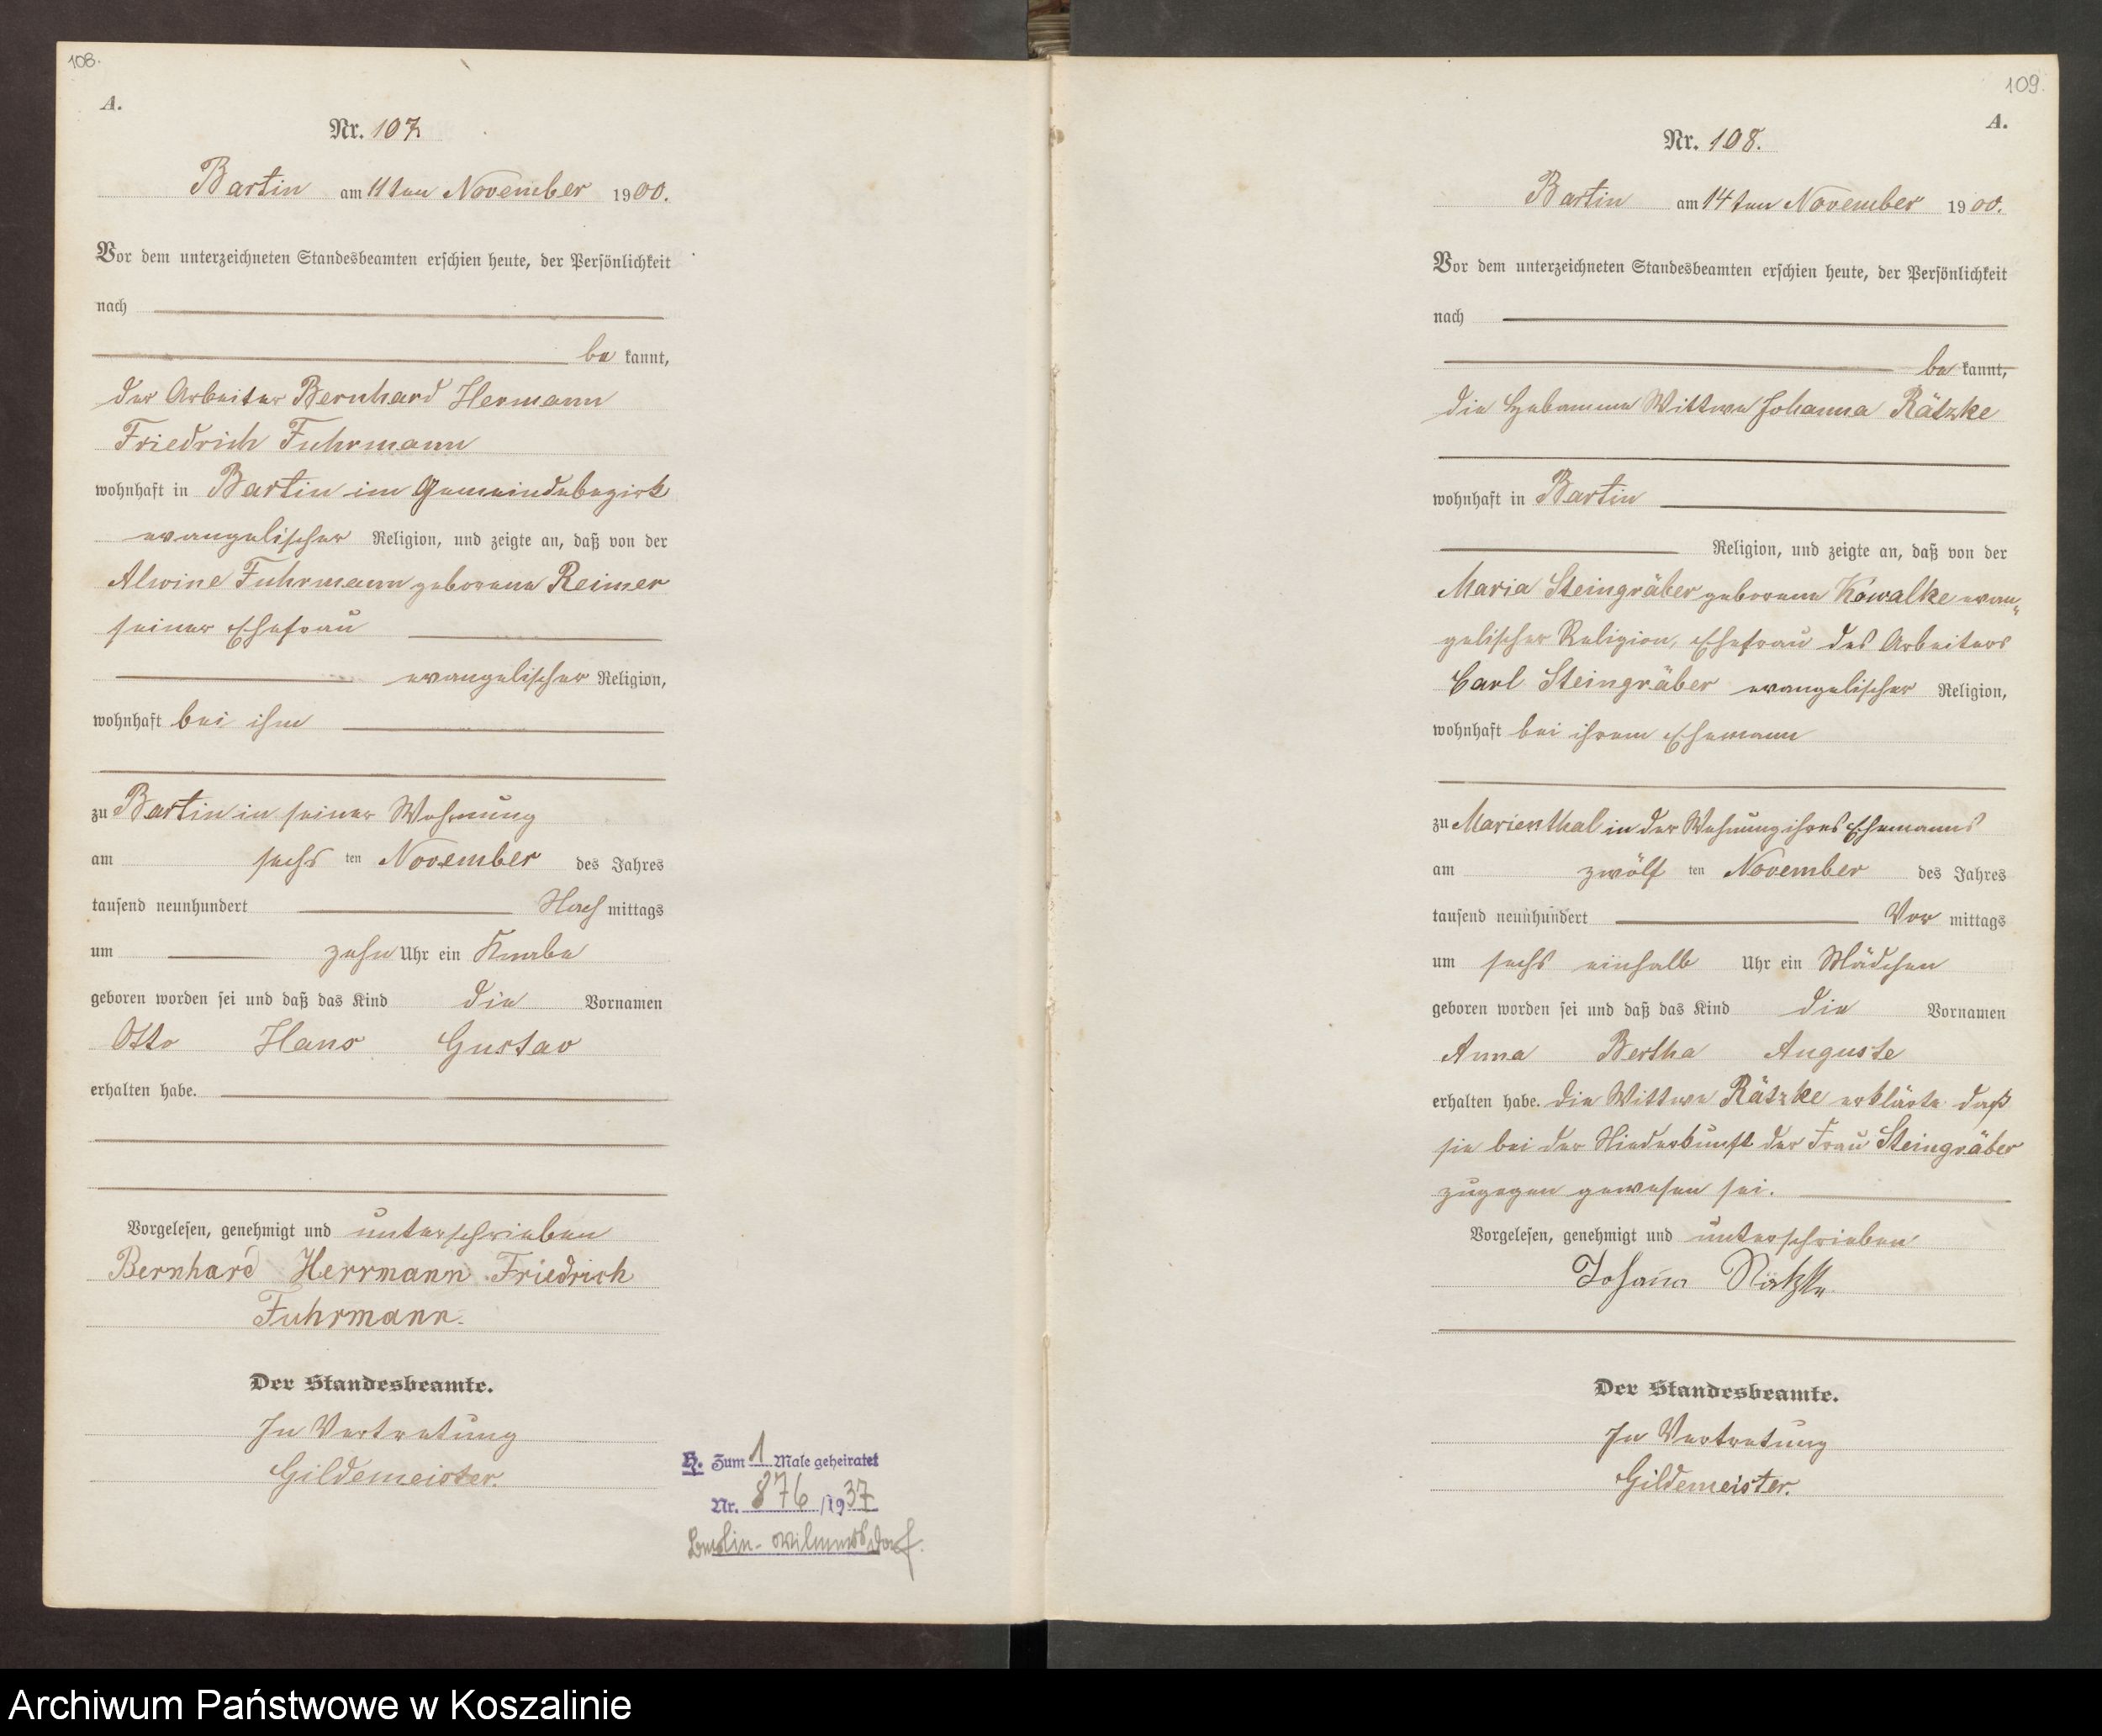 108.
A.
Nr. 107.
Bartin am 11ten November 1900.
Vor dem unterzeichneten Standesbeamten erschien heute, der Persönlichkeit
nach
be kannt,
der Arbeiter Bernhard Hermann
Friedrich Fuhrmann
wohnhaft in Bartin im Gemeindebezirk
evangelischer Religion, und zeigte an, daß von der
Alwine Fuhrmann geborene Reimer
seiner Ehefrau
evangelischer Religion,
wohnhaft bei ihm
zu Bartin in seiner Wohnung
am sechs ten November des Jahres
tausend neunhundert Nach mittags
um zehn Uhr ein Knabe
geboren worden sei und daß das Kind die Vornamen
Otto Hans Gustav
erhalten habe.
Vorgelesen, genehmigt und unterschrieben
Bernhard Herrmann Friedrich
Fuhrmann.
Der Standesbeamte.
In Vertretung
Gildemeister.
H. Zum 1 Male geheiratet
Nr. 876 /1937
Berlin-Wilmersdorf.
109.
A.
Nr. 108.
Bartin am 14ten November 1900.
Vor dem unterzeichneten Standesbeamten erschien heute, der Persönlichkeit
nach
be kannt,
die Hebamme Wittwe Johanna Rätzke
wohnhaft in Bartin
Religion, und zeigte an, daß von der
Maria Steingräber geborene Kowalke evan„
gelischer Religion, Ehefrau des Arbeiters
Carl Steingräber evangelischer Religion,
wohnhaft bei ihrem Ehemann
zu Marienthal in der Wohnung ihres Ehemanns
am zwölf ten November des Jahres
tausend neunhundert Vor mittags
um sechs einhalb Uhr ein Mädchen
geboren worden sei und daß das Kind die Vornamen
Anna Bertha Auguste
erhalten habe. Die Wittwe Rätzke erklärte daß
sie bei der Niederkunft der Frau Steingräber
zugegen gewesen sei.
Vorgelesen, genehmigt und unterschrieben
Johanna Rätzke
Der Standesbeamte.
In Vertretung
Gildemeister.
Archiwum Państwowe w Koszalinie